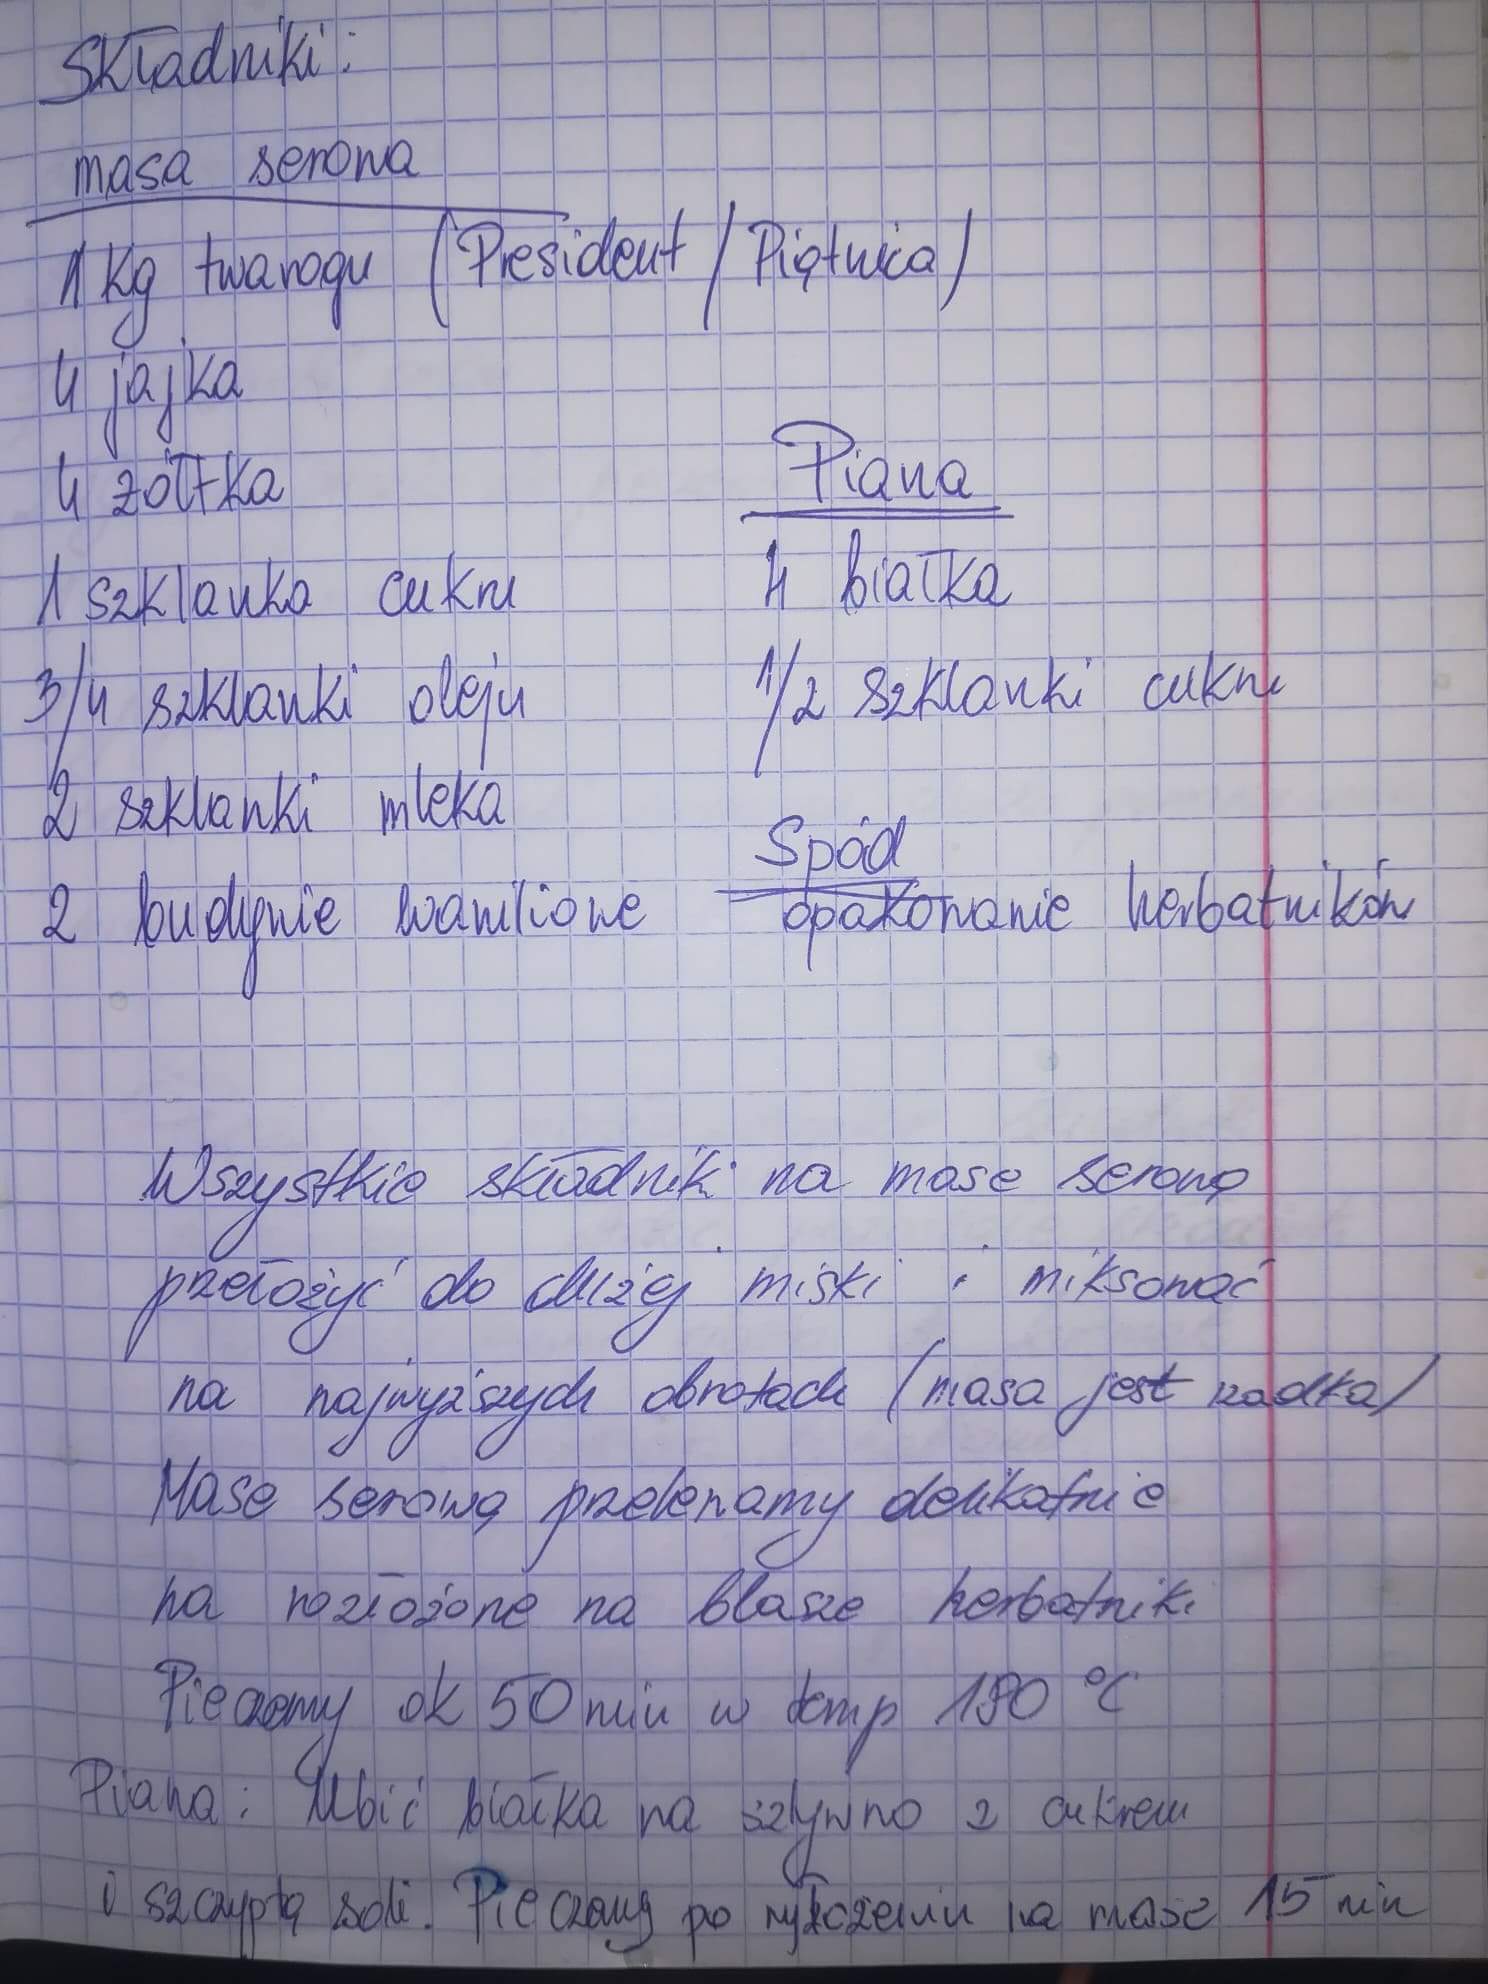 Składniki:
masa serowa
1 kg twarogu (President / Piątnica)
4 jajka
4 żółtka
1 szklanka cukru
3/4 szklanki oleju
2 szklanki mleka
2 budynie waniliowe
Piana
4 białka
1/2 szklanki cukru
Spód
opakowanie herbatników
Wszystkie składniki na mase serową
przełożyć do dużej miski i miksować
na najwyższych obrotach (masa jest rzadka)
Mase serową przelewamy delikatnie
na rozłożone na blasze herbatniki
Pieczemy ok 50 min w temp °C
Piana: Ubić białka na sztywno z cukrem
i szczyptą soli. Pieczemy po wyłożeniu na mase 15 min